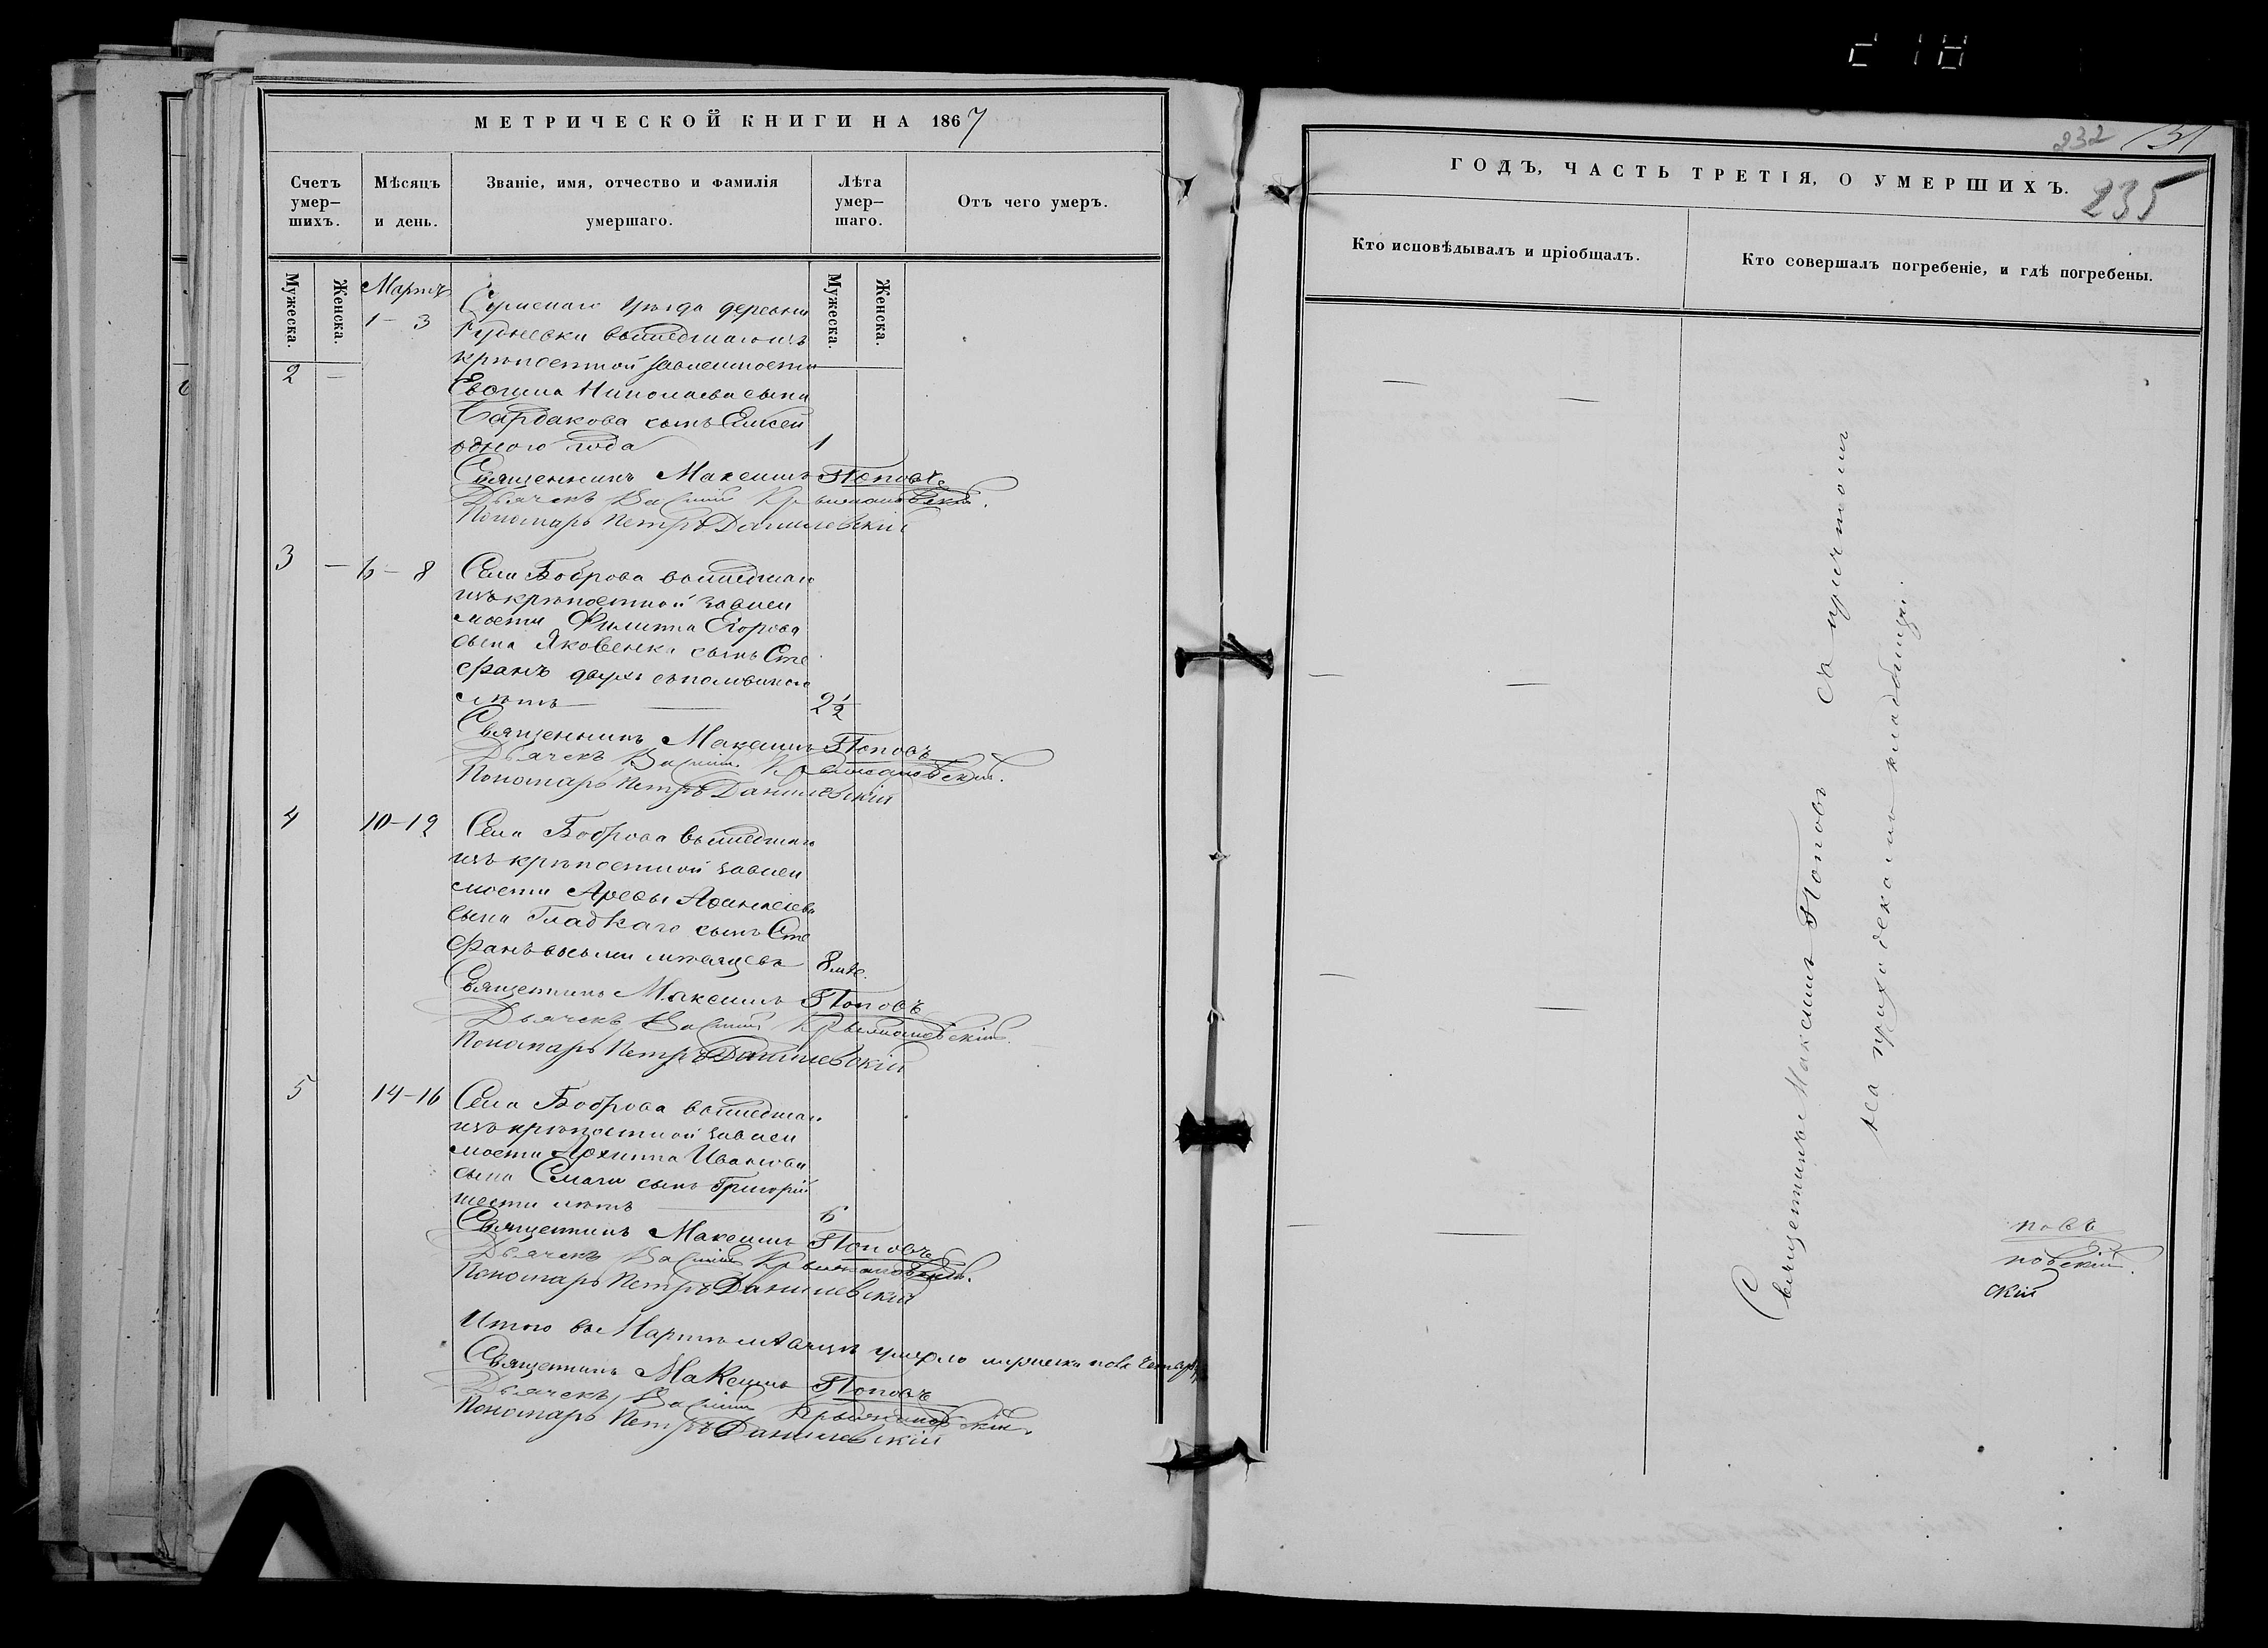 МЕТРИЧЕСКОЙ КНИГИ НА 1867
Счетъ умер—шихъ.
Мѣсяцъ и день.
Званіе, имя, отчество и фамилія умершаго.
Лѣта умер—шаго.
Отъ чего умеръ.
Мужеска.
Женска.
Мужеска.
Женска.
Мартъ
2 — 1 – 3
Сумскаго Уѣзда деревни
вышедшаго изъ
крѣпостной зависимости
Николаева сына
Бардакова сынъ Елисей
одного года 1
Священникъ Максимъ Поповъ
Дьячекъ Василій
Пономарь Петръ Данилевскій
3 — 6 – 8
Села Боброва вышедшаго
изъ крѣпостной зависи
мости Филиппа Егорова
сына Яковенка сынъ Сте
фанъ двухъ съ половиною
лѣтъ — 2½
Священникъ Максимъ Поповъ
Дьячекъ Василій
Пономарь Петръ Данилевскій
4 10–12
Села Боброва вышедшаго
изъ крѣпостной зависи
мости Арефы Аѳанасіева
сына Гладкаго сынъ Сте
фанъ восьми мѣсяцевъ 8 мѣс.
Священникъ Максимъ Поповъ
Дьячекъ Василій
Пономарь Петръ Данилевскій
5 14–16
Села Боброва вышедшаго
изъ крѣпостной зависи
мости Архиппа Иванова
сына сынъ Григорій
шести лѣтъ — 6
Священникъ Максимъ Поповъ
Дьячекъ Василій
Пономарь Петръ Данилевскій
Итого въ Мартѣ мѣсяцѣ умерло мужеска пола четыре
Священникъ Максимъ Поповъ
Дьячекъ Василій
Пономарь Петръ Данилевскій
232
235
ГОДЪ, ЧАСТЬ ТРЕТІЯ, О УМЕРШИХЪ.
Кто исповѣдывалъ и пріобщалъ.
Кто совершалъ погребеніе, и гдѣ погребены.
Священникъ Максимъ Поповъ съ причтомъ
на приходскомъ кладбищѣ.
повъ
новскій.
скій